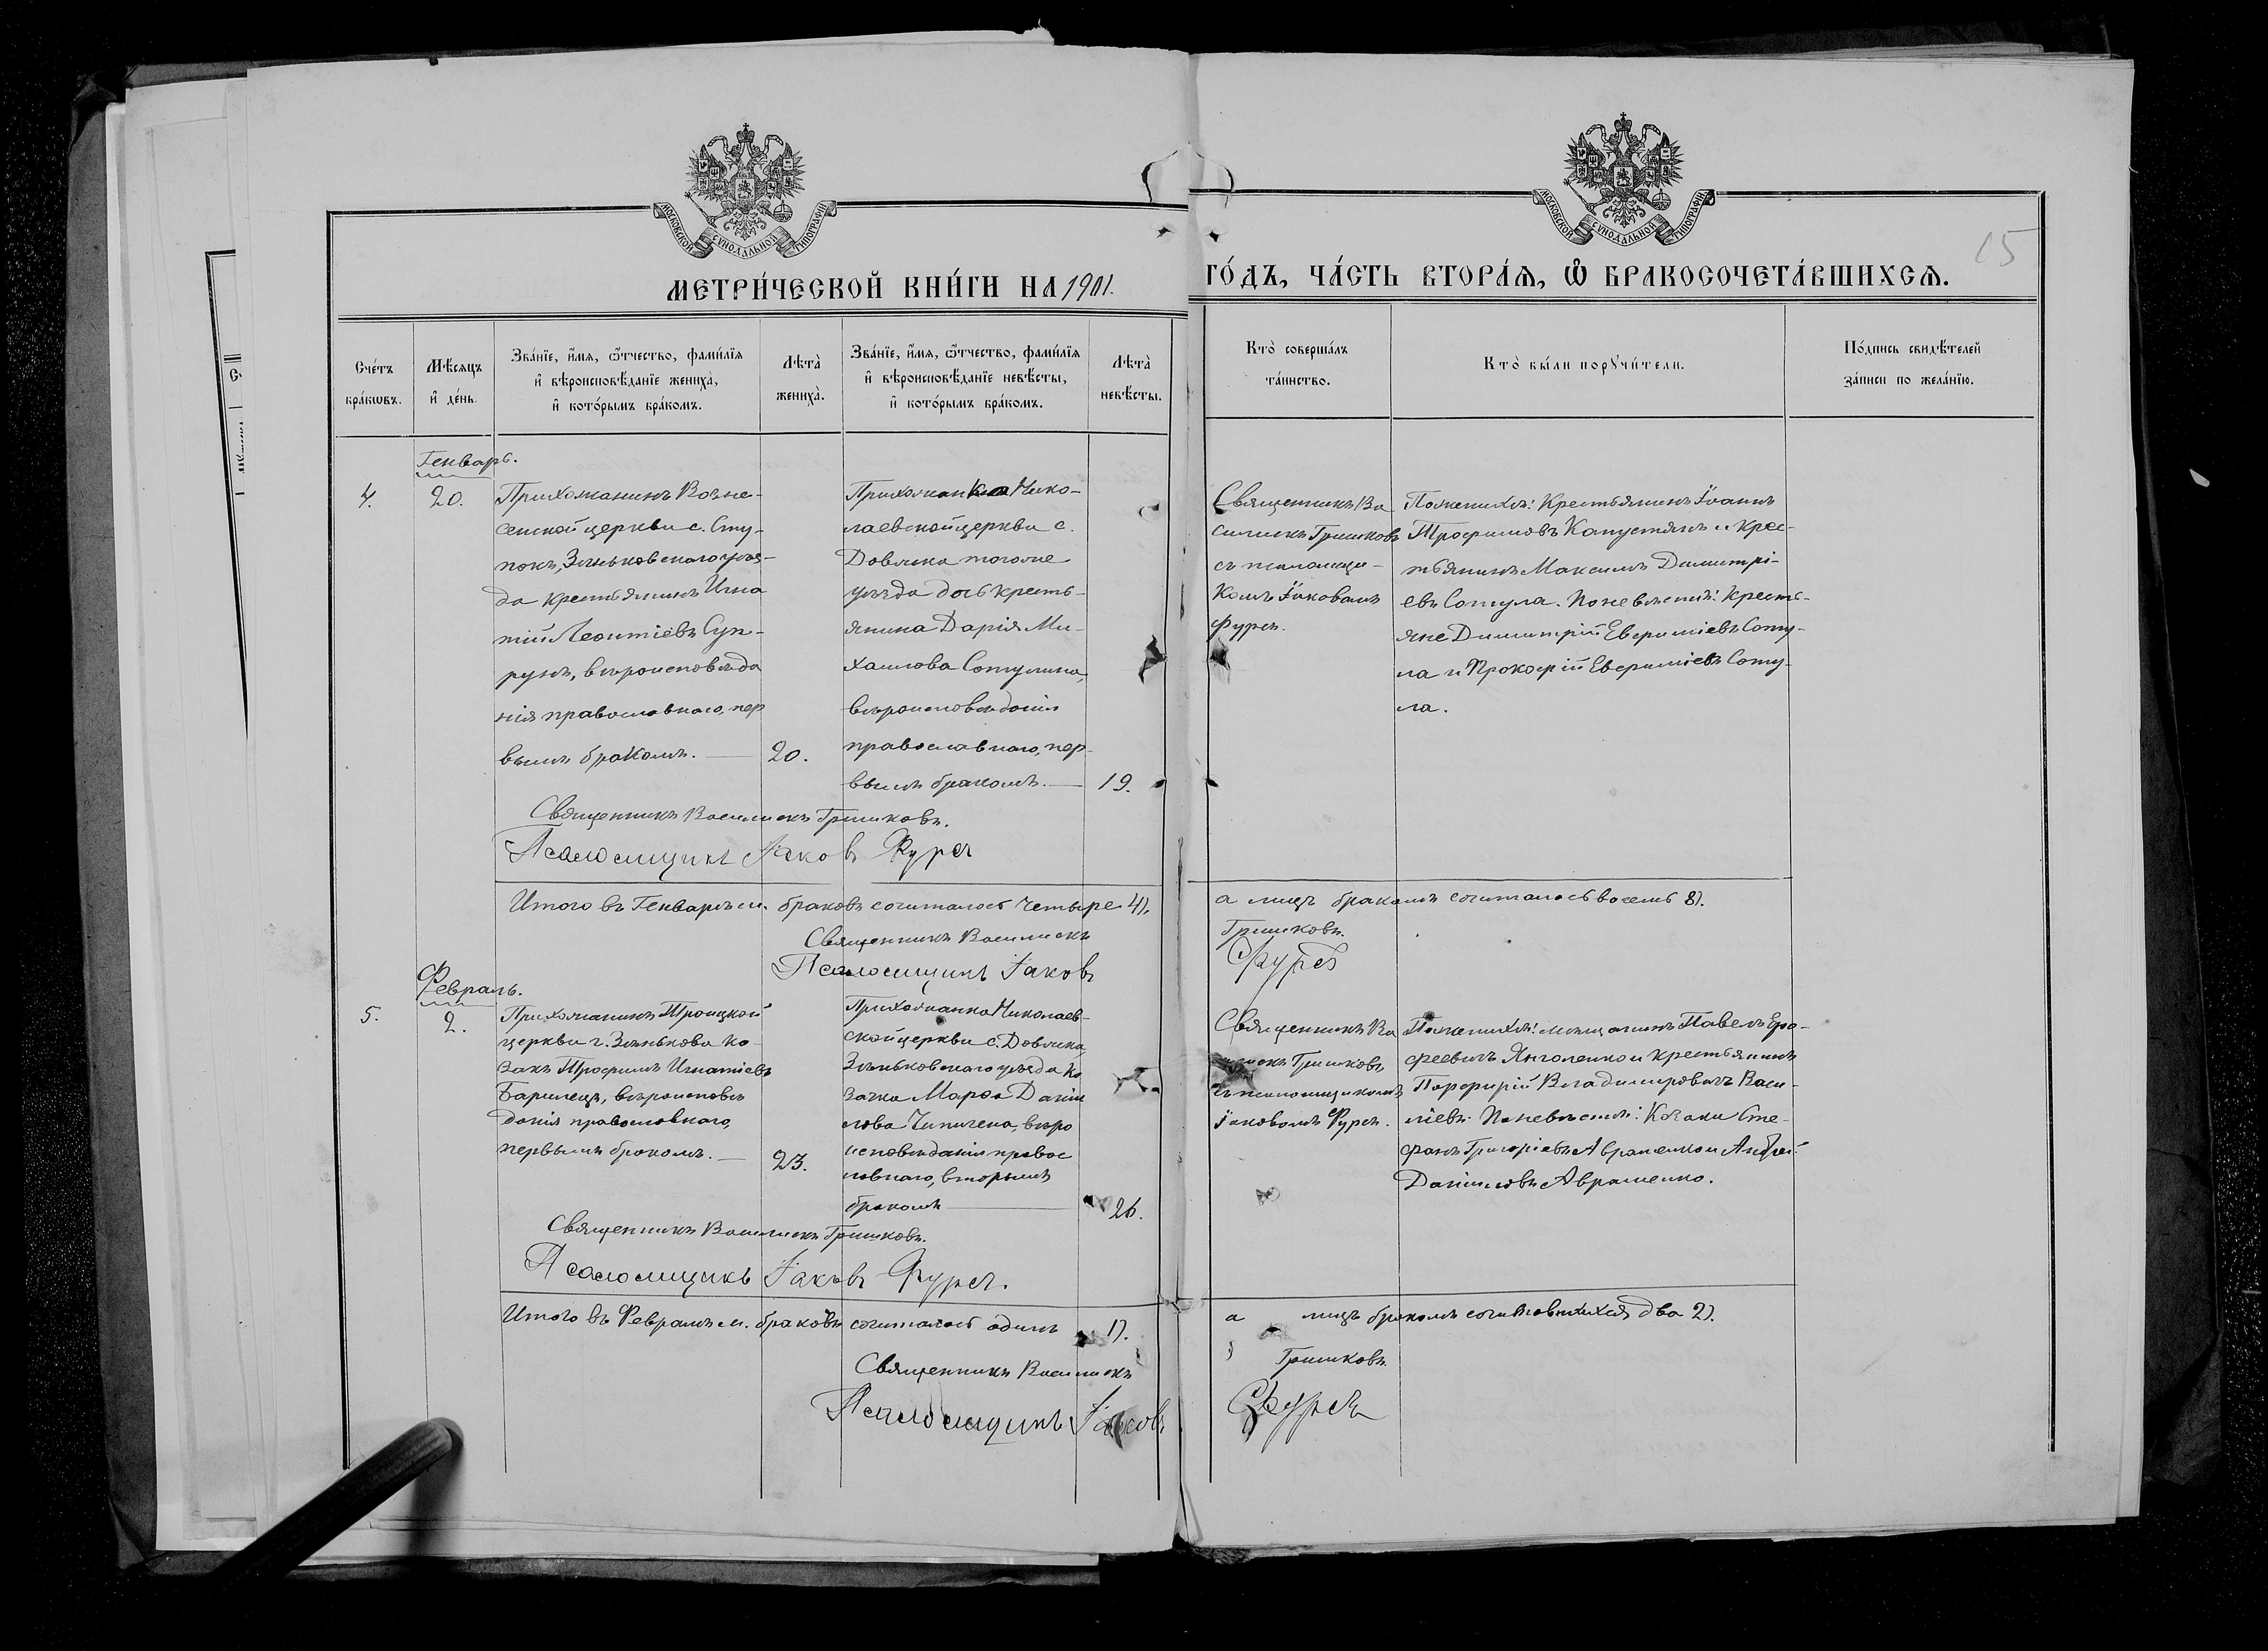 МОСКОВСКОЙ СѴНОДАЛЬНОЙ ТИПОГРАФІИ
МОСКОВСКОЙ СѴНОДАЛЬНОЙ ТИПОГРАФІИ
15
МЕТРИ́ЧЕСКОЙ КНИ́ГИ НА 1901.
ГО́ДЪ, ЧА́СТЬ ВТОРА́Я, Ѽ БРАКОСОЧЕТА́ВШИХСЯ.
Сче́тъ
бра́кѡвъ.
Мѣ́сяцъ
и҆ де́нь.
Зва́нїе, и҆́мя, ѻ҆́тчество, фами́лїя
и҆ вѣроисповѣ́данїе жениха̀,
и҆ кото́рымъ бра́комъ.
Лѣта̀
жениха̀.
Зва́нїе, и҆́мя, ѻ҆́тчество, фами́лїя
и҆ вѣроисповѣ́данїе невѣ́сты,
и҆ кото́рымъ бра́комъ.
Лѣта̀
невѣ́сты.
Кто̀ соверша́лъ
та́инство.
Кто̀ бы́ли порꙋчи́тели.
По́дпись свидѣ́телей
за́писи по жела́нїю.
Генварь.
4.
20.
Прихожанинъ Возне-
сенской церкви с. Сту-
покъ, Зѣньковского уѣз-
да крестьянинъ Игна
тій Леонтіевъ Суп-
рунъ, вѣроисповѣда
нія православного, пер
вымъ бракомъ.
20.
Прихожанка Нико-
лаевской церкви с.
Довжика того же
уѣзда дочь кресть-
янина Дарія Ми-
хаилова Сотулина,
вѣроисповѣданія
православного, пер-
вымъ бракомъ.
19.
Священникъ Ва
силискъ Гришковъ
съ псаломщи-
комъ Іаковомъ
Фурсъ.
По женихѣ: Крестьянинъ Іоаннъ
Трофимовъ Капустянъ и крес-
тьянинъ Максимъ Димитрі-
евъ Сотула. По невѣстѣ: кресть-
яне Димитрій Евфиміевъ Соту-
ла и Прокофій Евфиміевъ Соту-
ла.
Священникъ Василискъ Гришковъ.
Псаломщикъ Іаковъ Фурсъ
Итого въ Генварѣ м. браковъ сочиталось четыре 4).
а лицъ бракомъ сочиталось восемь 8).
Священникъ Василискъ
Гришковъ.
Псаломщикъ Іаковъ
Фурсъ
Февраль.
5.
2.
Прихожанинъ Троицкой
церкви г. Зѣнькова ко-
закъ Трофимъ Игнатіевъ
Барилецъ, вѣроисповѣ
данія православного,
первымъ бракомъ.
23.
Прихожанка Николаев-
ской церкви с. Довжика,
Зѣньковского уѣзда ко
зачка Марфа Даніи
лова вѣро
исповѣданія правос
лавного, вторымъ
бракомъ
26.
Священникъ Ва
силискъ Гришковъ
съ псаломщикомъ
Іаковомъ Фурсъ.
По женихѣ: мѣщанинъ Павелъ Еро-
феевичъ Янголенко и крестьянинъ
Порфирій Владимировичъ Васи-
ліевъ. По невѣстѣ: Козаки Сте-
фанъ Григоріевъ Авраменко и Андрей
Даніиловъ Авраменко.
Священникъ Василискъ Гришковъ.
Псаломщикъ Іаковъ Фурсъ.
Итого въ Февралѣ м. браковъ сочиталось одинъ 1).
а лицъ бракомъ сочитавшихся два 2).
Священникъ Василискъ
Гришковъ
Псаломщикъ Іаковъ
Фурсъ